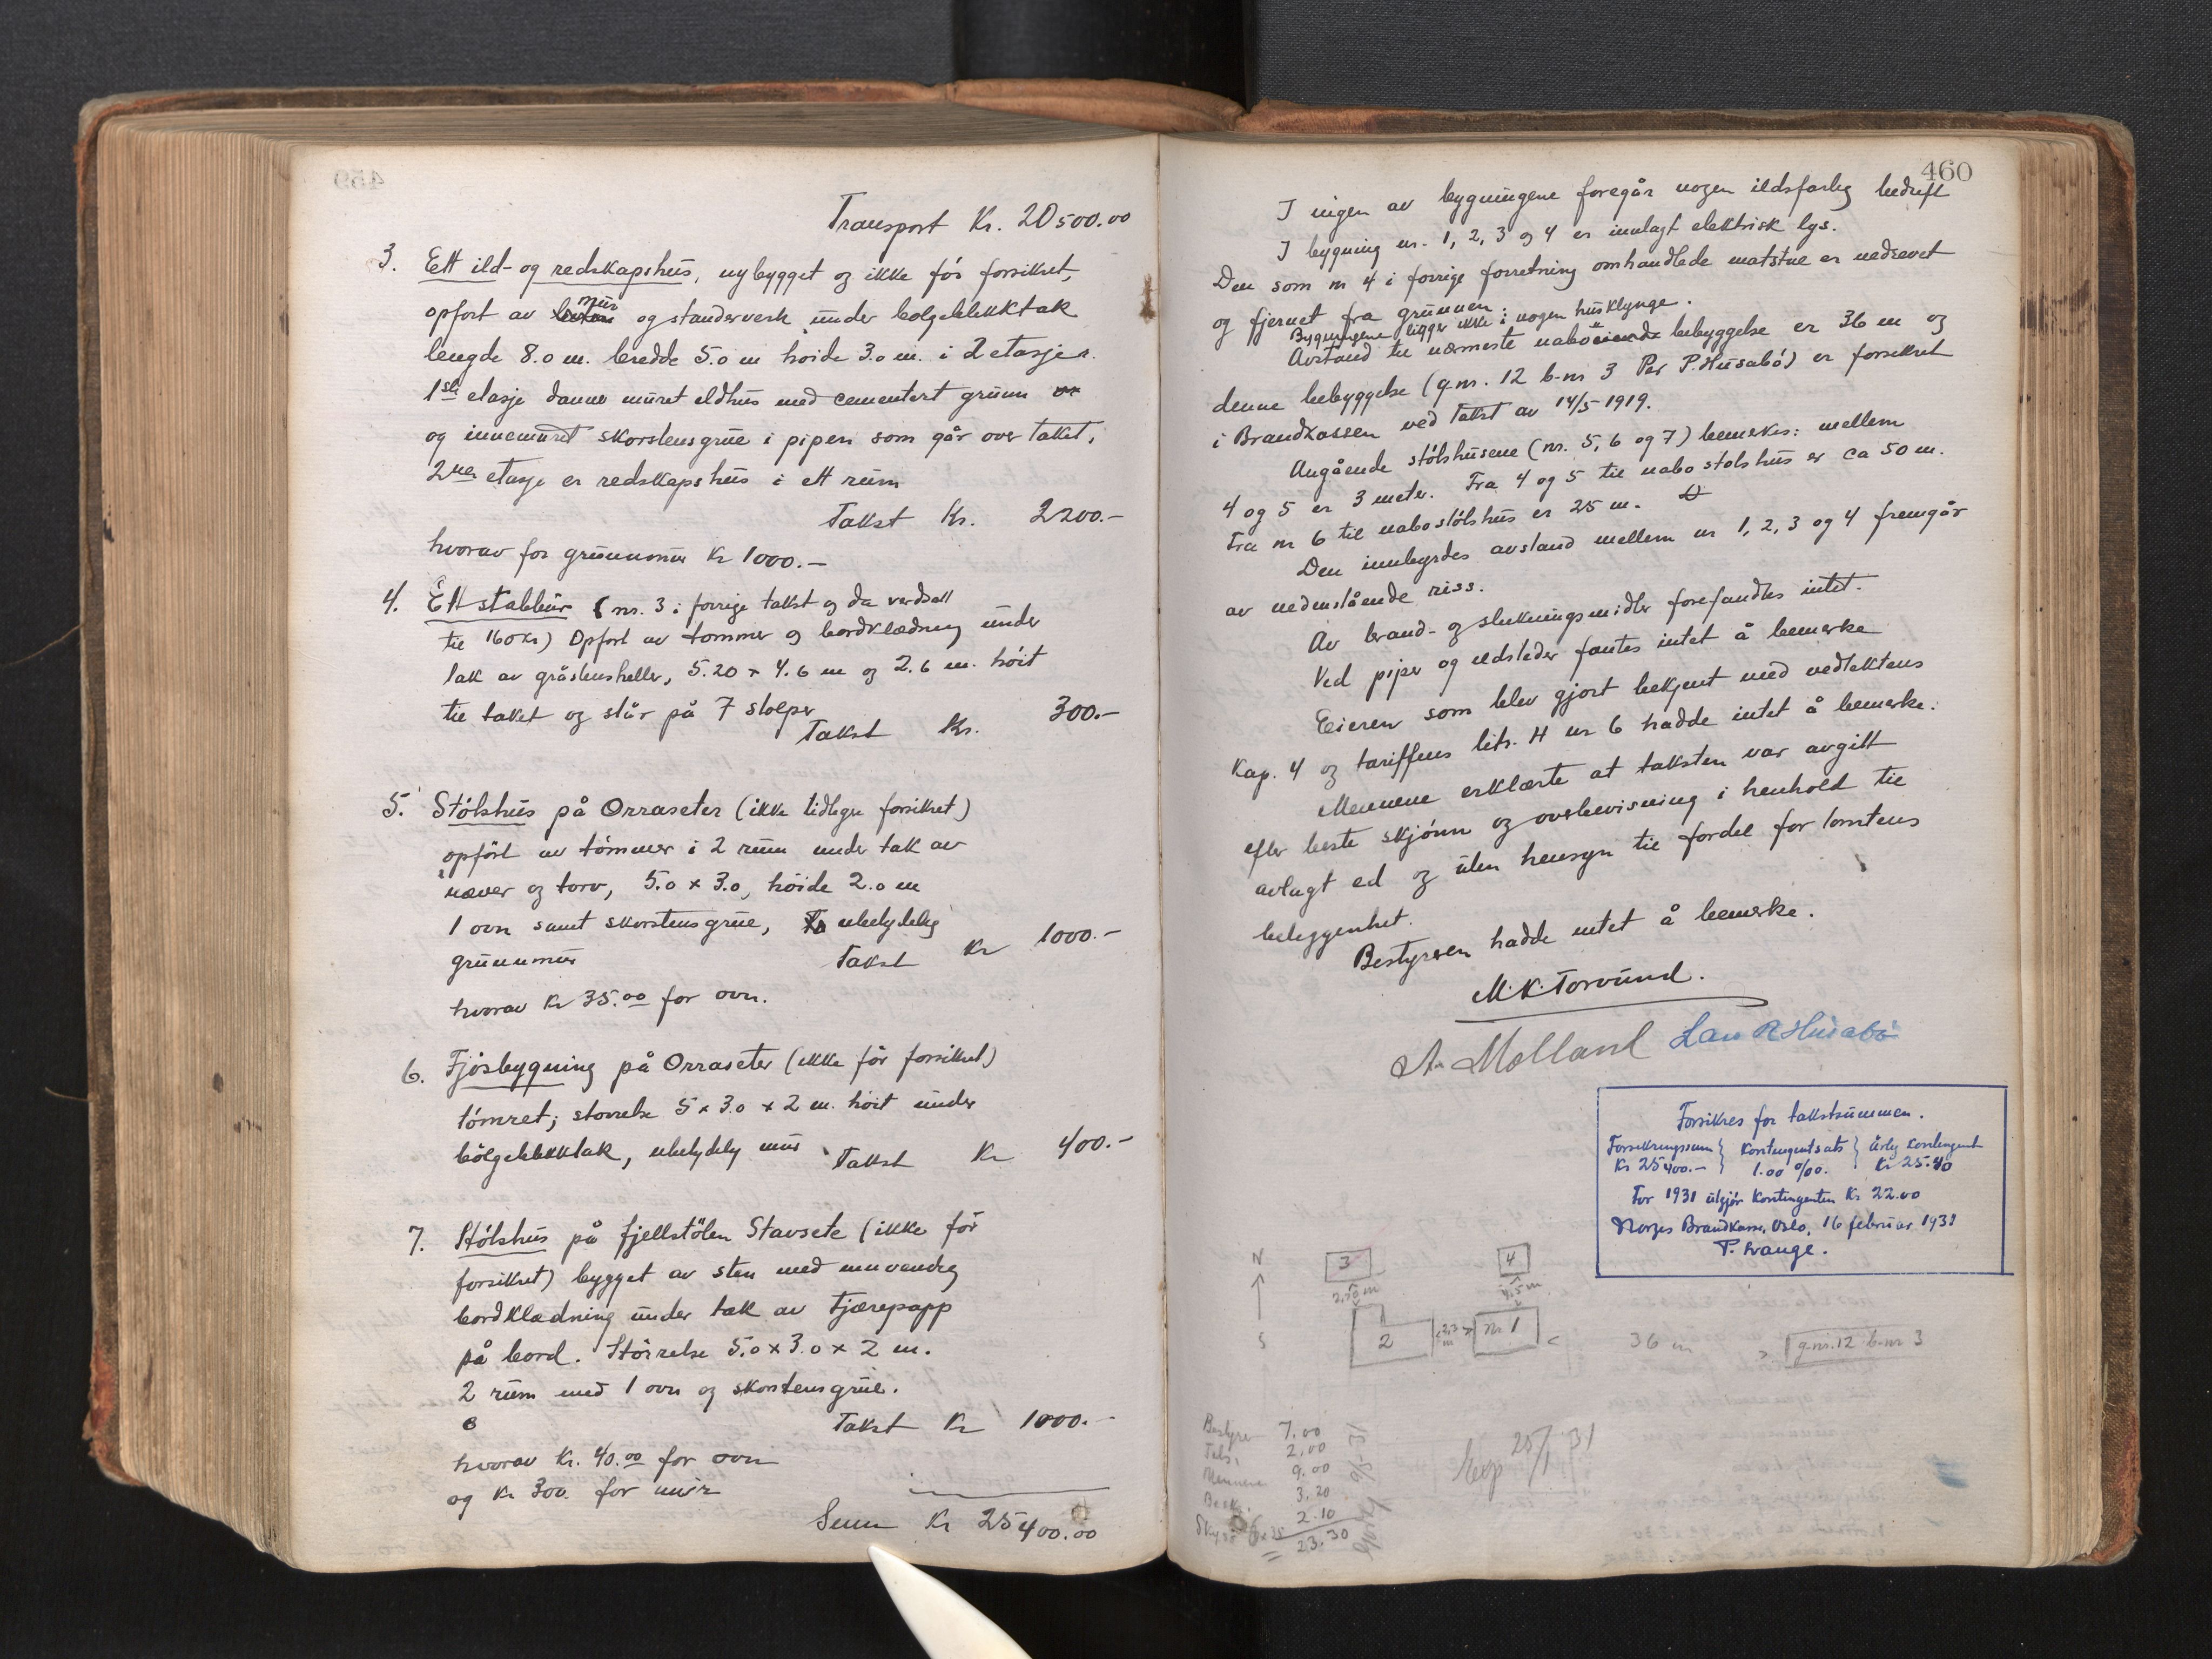 459
Transport Kr. 20500.00
3. Ett ild- og redskapshus, nybygget og ikke før forsikret,
opført av mur og standerverk under bølgeblikktak
lengde 8.0 m. bredde 5.0 m høide 3.0 m. i 2 etasjer.
1ste etasje danner muret eldhus med cementert grunn
og innemuret skorstensgrue i pipen som går over taket.
2nen etasje er redskapshus i ett rum
Takst Kr. 2200.-
hvorav for grunnmur Kr 1000.-
4. Ett stabbur (nr. 3 i forrige takst og da verdsatt
til 160 kr) Opført av tømmer og bordklædning under
tak av gråstensheller, 5.20 x 4.6 m og 2.6 m. høit
til taket og står på 7 stolper
Takst Kr. 300.-
5. Stølshus på Orraseter (ikke tidligere forsikret)
opført av tømmer i 2 rum under tak av
næver og torv, 5.0 x 3.0, høide 2.0 m
1 ovn samt skorstensgrue, ubetydelig
grunnmur Takst Kr 1000.-
hvorav Kr 35.00 for ovn.
6. Fjøsbygning på Orraseter (ikke før forsikret)
tømret; størrelse 5 x 3.0 x 2 m. høit under
bølgeblikktak, ubetydelig mur. Takst Kr 400.-
7. Stølshus på fjellstølen Stavsete (ikke før
forsikret) bygget av sten med innvendig
bordklædning under tak av tjærepapp
på bord. Størrelse 5.0 x 3.0 x 2 m.
2 rum med 1 ovn og skorstensgrue.
Takst Kr 1000.-
hvorav Kr. 40.00 for ovn
og Kr 300. for mur
Sum Kr 25400.00
460
I ingen av bygningene foregår nogen ildsfarlig bedrift
I bygning nr. 1, 2, 3 og 4 er innlagt elektrisk lys.
Den som nr 4 i forrige forretning omhandlede matstue er nedrevet
og fjernet fra grunnen.
Bygningene ligger ikke i nogen husklynge.
Avstand til nærmeste nabo bebyggelse er 36 m og
denne bebyggelse (g.nr. 12 b-nr 3 Per P. Husabø) er forsikret
i Brandkassen ved takst av 14/5-1919.
Angående stølshusene (nr. 5, 6 og 7) bemerkes: mellem
4 og 5 er 3 meter. Fra 4 og 5 til nabo stølshus er ca 50 m.
Fra nr 6 til nabostølshus er 25 m.
Den innbyrdes avstand mellem nr 1, 2, 3 og 4 fremgår
av nedenstående riss.
Av brand- og slukningsmidler forefandtes intet.
Ved piper og ildsteder fantes intet å bemerke
Eieren som blev gjort bekjent med vedtektens
Kap. 4 og tariffens litr. H nr 6 hadde intet å bemerke.
Mennene erklærte at taksten var avgitt
efter beste skjønn og overbevisning i henhold til
avlagt ed og uten hensyn til fordel for tomtens
beliggenhet.
Bestyreren hadde intet å bemerke.
M.K. Torvund.
A. Molland Lars R Husabø
Forsikres for takstsummen.
Forsikringssum } Kontingentsats } Årlig kontingent
Kr 25400.- } 1.00 ‰. } Kr 25.40
For 1931 utgjør kontingenten Kr 22.00
Norges Brandkasse, Oslo, 16 februar 1931
P. Svange.
N
S
3
4
2.50 m
4.5 m
2
2.3 m
nr 1
36 m
g.nr. 12 b-nr 3
Bestyrer 7.00
2.00
Mennene 9.00
3.20
2.10
23.30
Exp 28/1 31